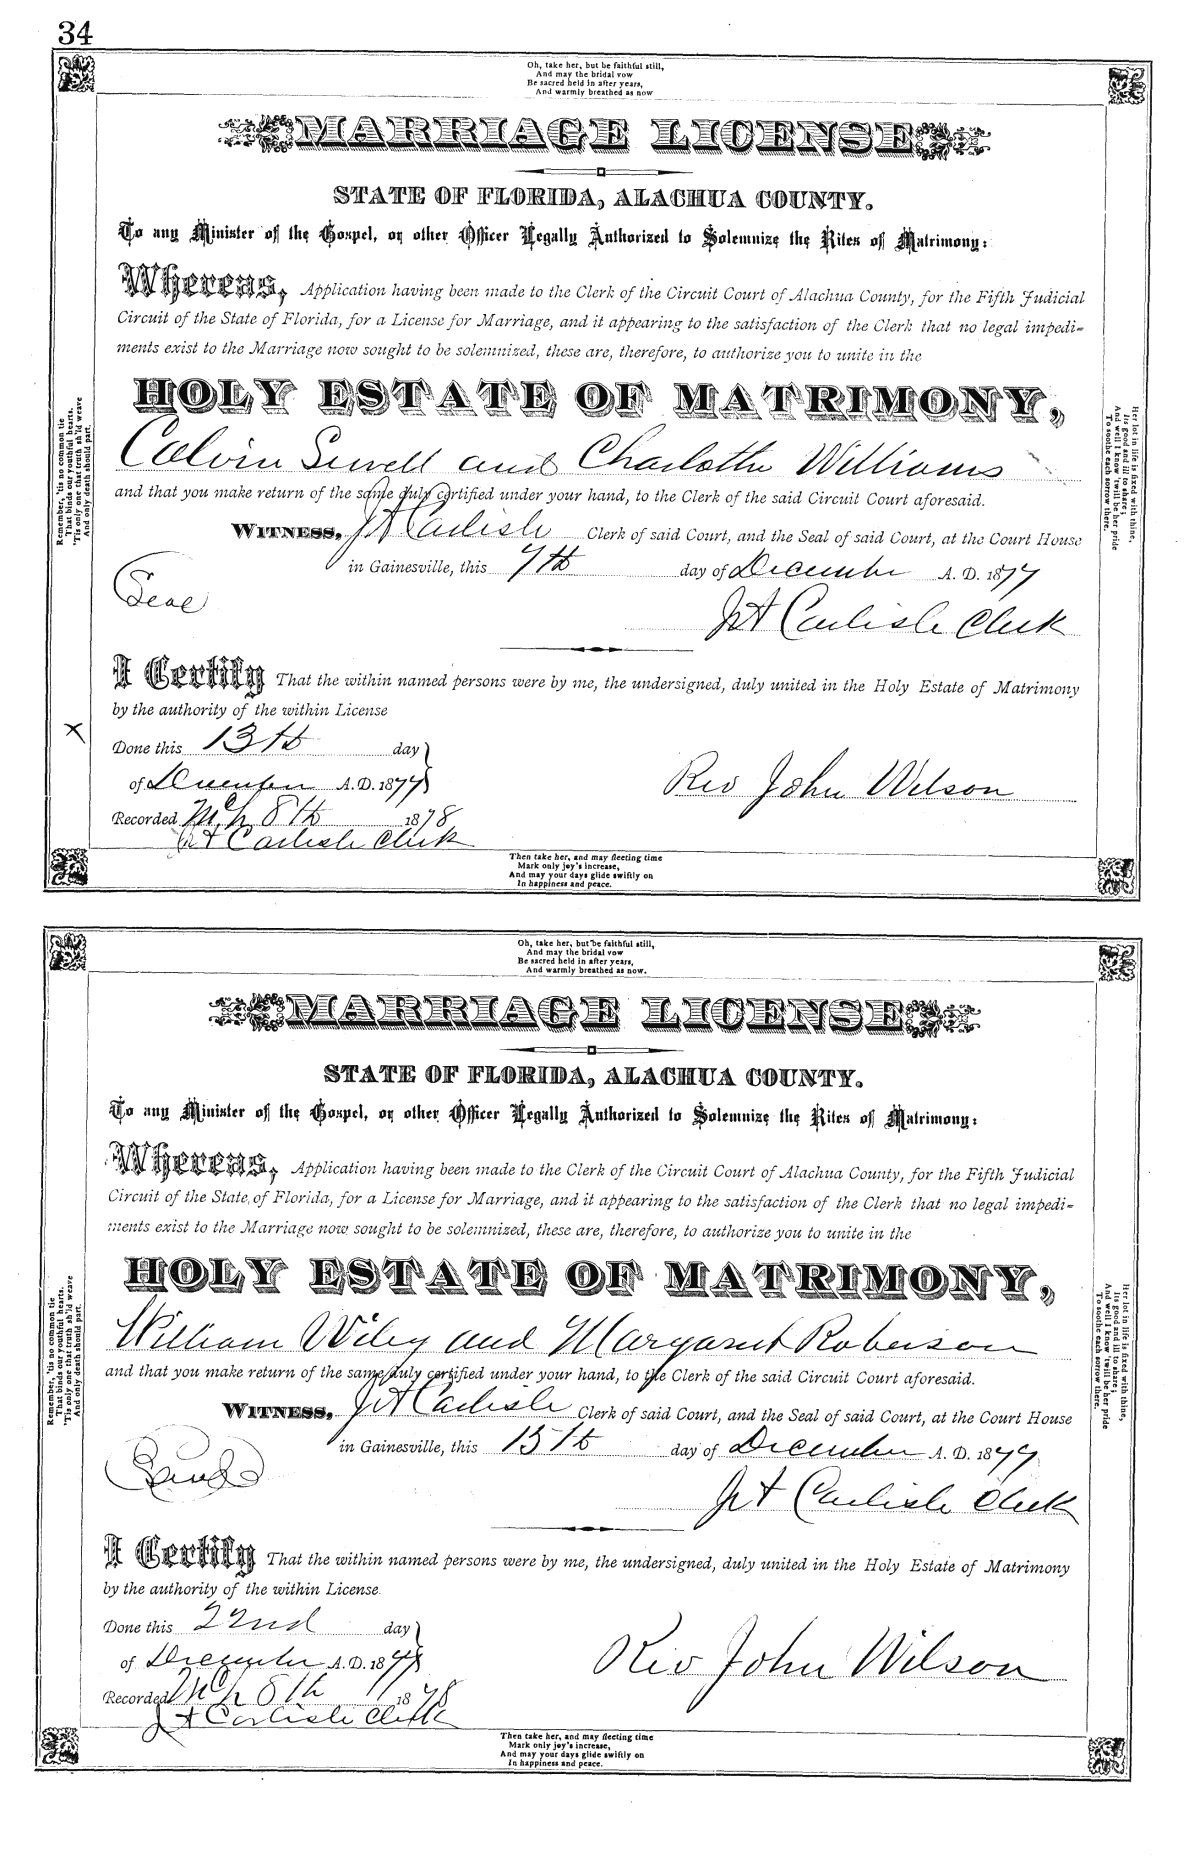 34
Oh, take her, but be faithful still,
And may the bridal vow
Be sacred held in after years,
And warmly breathed as now
MARRIAGE LICENSE
STATE OF FLORIDA, ALACHUA COUNTY.
To any Minister of the Gospel, or other Officer Legally Authorized to Solemnize the Rites of Matrimony:
Whereas, Application having been made to the Clerk of the Circuit Court of Alachua County, for the Fifth Judicial
Circuit of the State of Florida, for a License for Marriage, and it appearing to the satisfaction of the Clerk that no legal impedi-
ments exist to the Marriage now sought to be solemnized, these are, therefore, to authorize you to unite in the
HOLY ESTATE OF MATRIMONY,
Calvin Sewell and Charlotte Williams
and that you make return of the same duly certified under your hand, to the Clerk of the said Circuit Court aforesaid.
WITNESS, J A Carlisle Clerk of said Court, and the Seal of said Court, at the Court House
in Gainesville, this 7th day of December A. D. 1877
Seal
J A Carlisle Clerk
I Certify That the within named persons were by me, the undersigned, duly united in the Holy Estate of Matrimony
by the authority of the within License
Done this 13th day
of December A. D. 1877
Rev John Wilson
Recorded Mch 8th 1878
J A Carlisle Clerk
Remember, 'tis no common tie
That binds our youthful hearts,
'Tis only one that truth sh'ld weave
And only death should part.
Her lot in life is fixed with thine,
Its good and ill to share;
And well I know 'twill be her pride
To soothe each sorrow there.
Then take her, and may fleeting time
Mark only joy's increase,
And may your days glide swiftly on
In happiness and peace.
Oh, take her, but be faithful still,
And may the bridal vow
Be sacred held in after years,
And warmly breathed as now.
MARRIAGE LICENSE
STATE OF FLORIDA, ALACHUA COUNTY.
To any Minister of the Gospel, or other Officer Legally Authorized to Solemnize the Rites of Matrimony:
Whereas, Application having been made to the Clerk of the Circuit Court of Alachua County, for the Fifth Judicial
Circuit of the State of Florida, for a License for Marriage, and it appearing to the satisfaction of the Clerk that no legal impedi-
ments exist to the Marriage now sought to be solemnized, these are, therefore, to authorize you to unite in the
HOLY ESTATE OF MATRIMONY,
William Wiley and Margaret Roberson
and that you make return of the same duly certified under your hand, to the Clerk of the said Circuit Court aforesaid.
WITNESS, J A Carlisle Clerk of said Court, and the Seal of said Court, at the Court House
in Gainesville, this 15th day of December A. D. 1877
J A Carlisle Clerk
I Certify That the within named persons were by me, the undersigned, duly united in the Holy Estate of Matrimony
by the authority of the within License
Done this 22nd day
of December A. D. 1877
Rev John Wilson
Recorded Mch 8th 1878
J A Carlisle Clerk
Remember, 'tis no common tie
That binds our youthful hearts,
'Tis only one that truth sh'ld weave
And only death should part.
Her lot in life is fixed with thine,
Its good and ill to share;
And well I know 'twill be her pride
To soothe each sorrow there.
Then take her, and may fleeting time
Mark only joy's increase,
And may your days glide swiftly on
In happiness and peace.